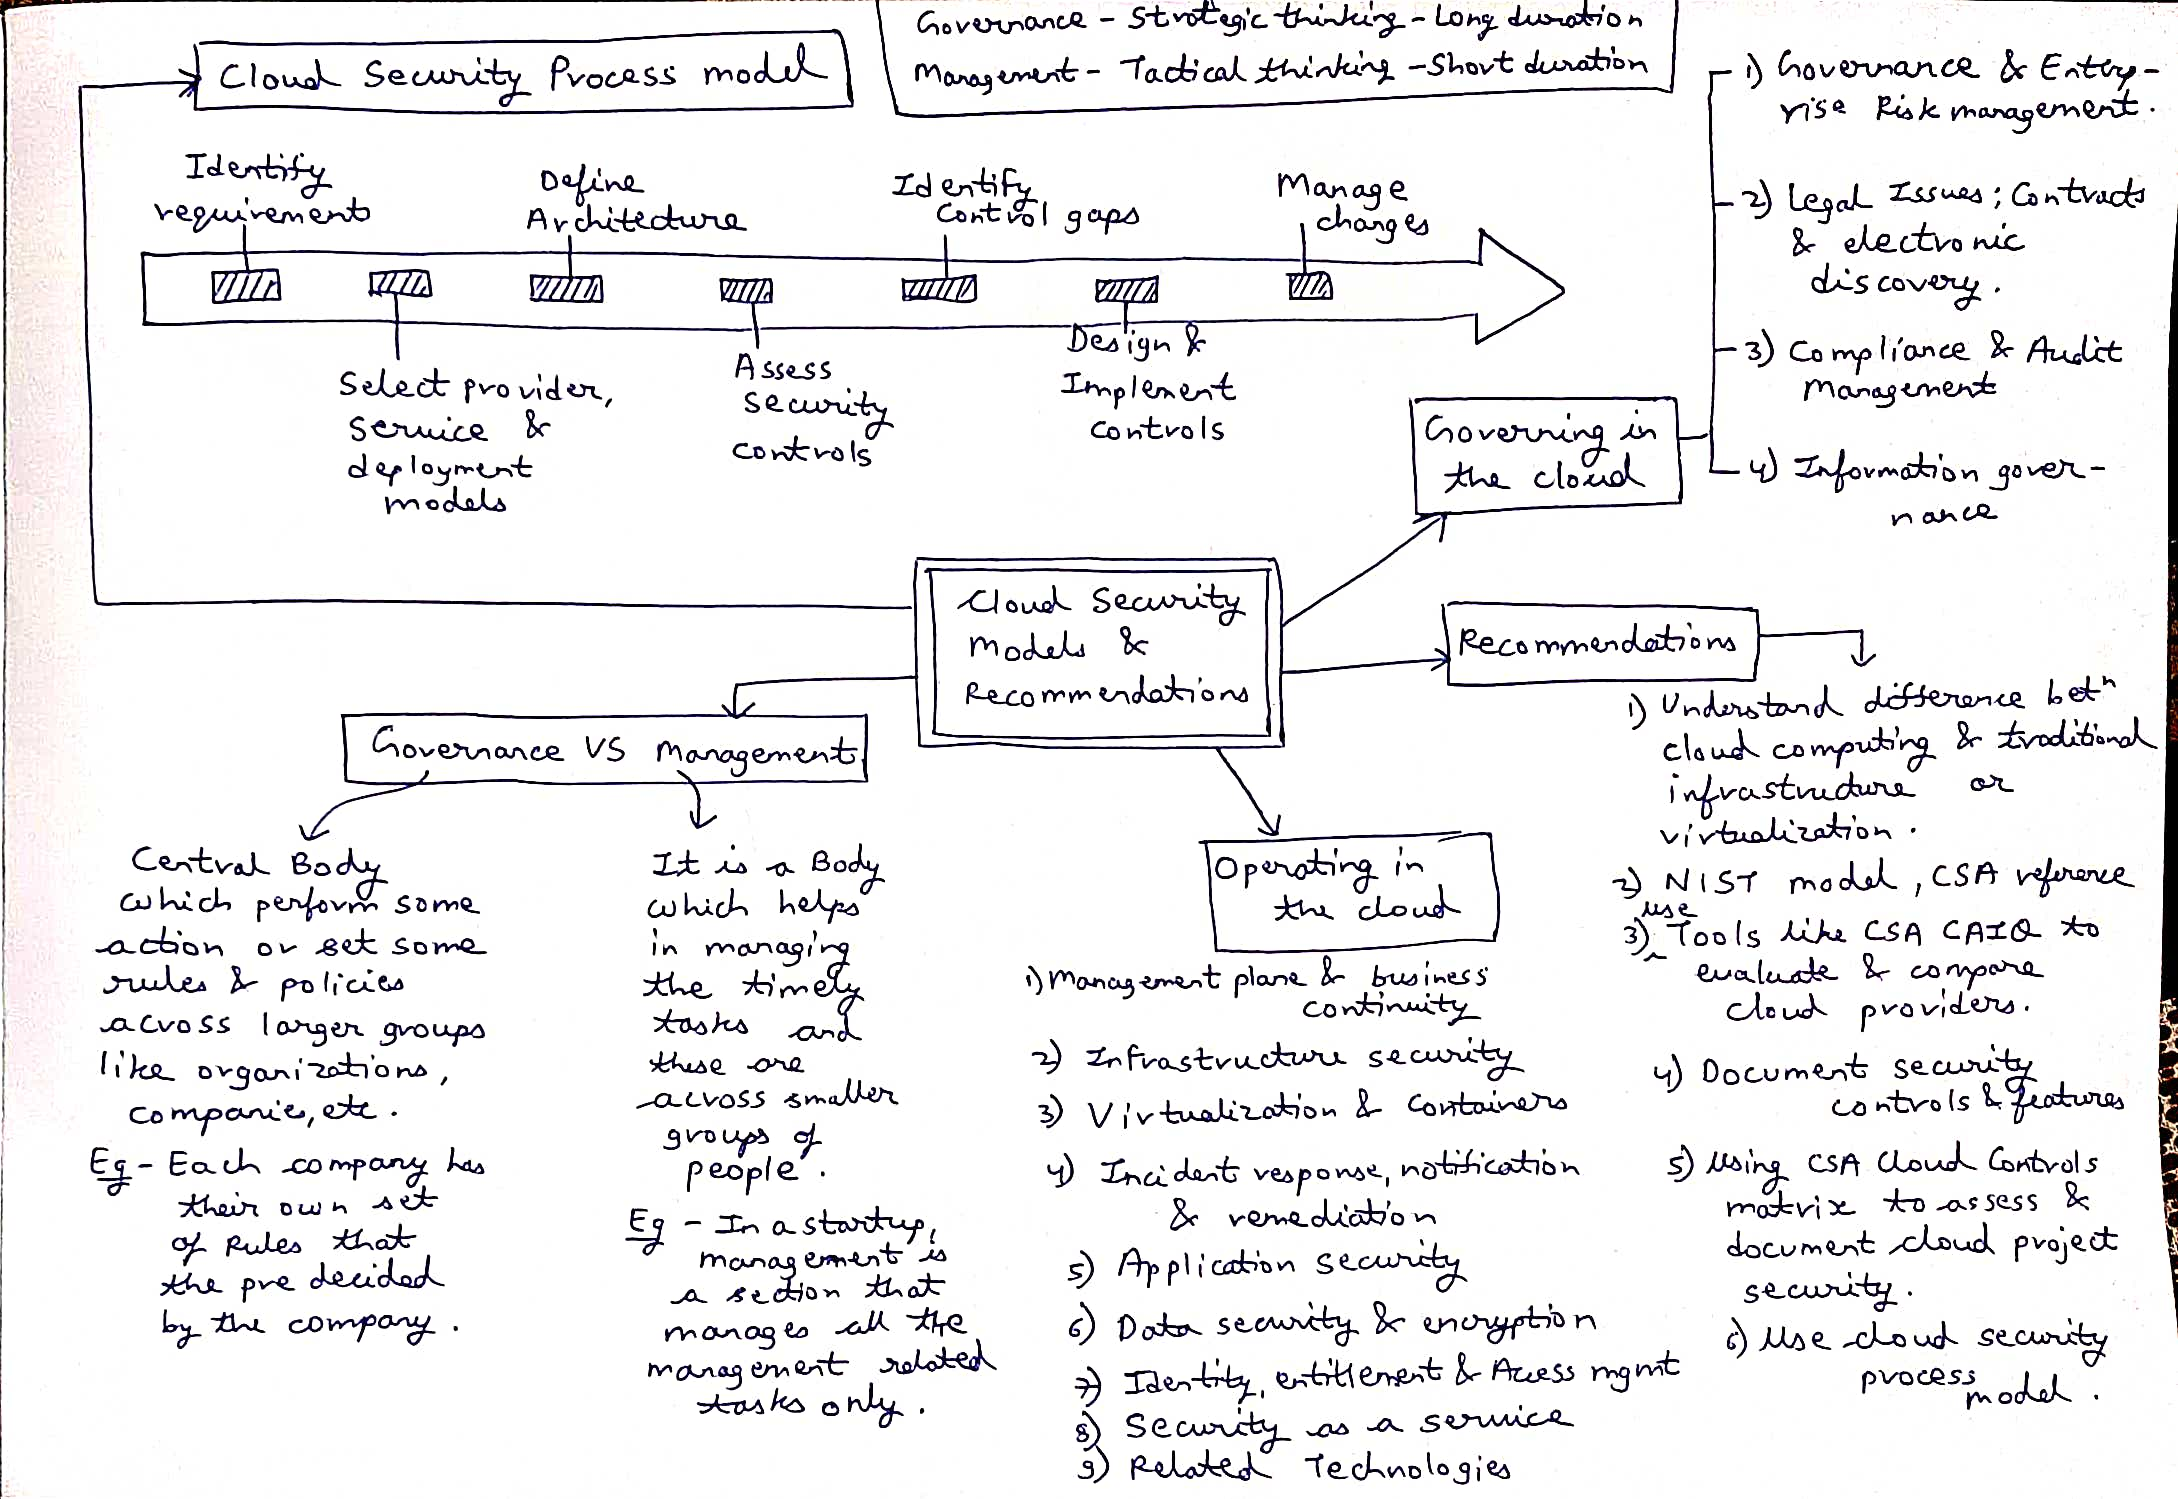 Governance - Strategic thinking - Long duration
Management - Tactical thinking - Short duration
Cloud Security Process model
Identify
requirement
Define
Architecture
Identify
control gaps
Manage
changes
Select provider,
service &
deployment
models
Assess
security
controls
Design &
Implement
controls
Governing in
the cloud
1) Governance & Enterp-
rise Risk management.
2) Legal Issues; Contracts
& electronic
discovery.
3) Compliance & Audit
Management
4) Information gover-
nance
Cloud Security
Models &
Recommendations
Recommendations
1) Understand difference betn
cloud computing & traditional
infrastructure or
virtualization.
2) NIST model, CSA reference
use
3) Tools like CSA CAIQ to
evaluate & compare
cloud providers.
4) Document security
controls & features
5) Using CSA Cloud Controls
matrix to assess &
document cloud project
security.
6) Use cloud security
process
model.
Governance VS Management
Central Body
which perform some
action or set some
rules & policies
across larger groups
like organizations,
companies, etc.
Eg - Each company has
their own set
of Rules that
the pre decided
by the company.
It is a Body
which helps
in managing
the timely
tasks and
these are
across smaller
groups of
people.
Eg - In a startup,
management is
a section that
manages all the
management related
tasks only.
Operating in
the cloud
1) Management plane & business
continuity
2) Infrastructure security
3) Virtualization & Containers
4) Incident response, notification
& remediation
5) Application security
6) Data security & encryption
7) Identity, entitlement & Access mgmt
8) Security as a service
9) Related Technologies